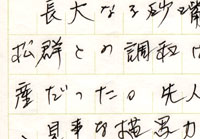 長大なる砂嘴
松群との調和は
座だった。先人
、見事な描畧力